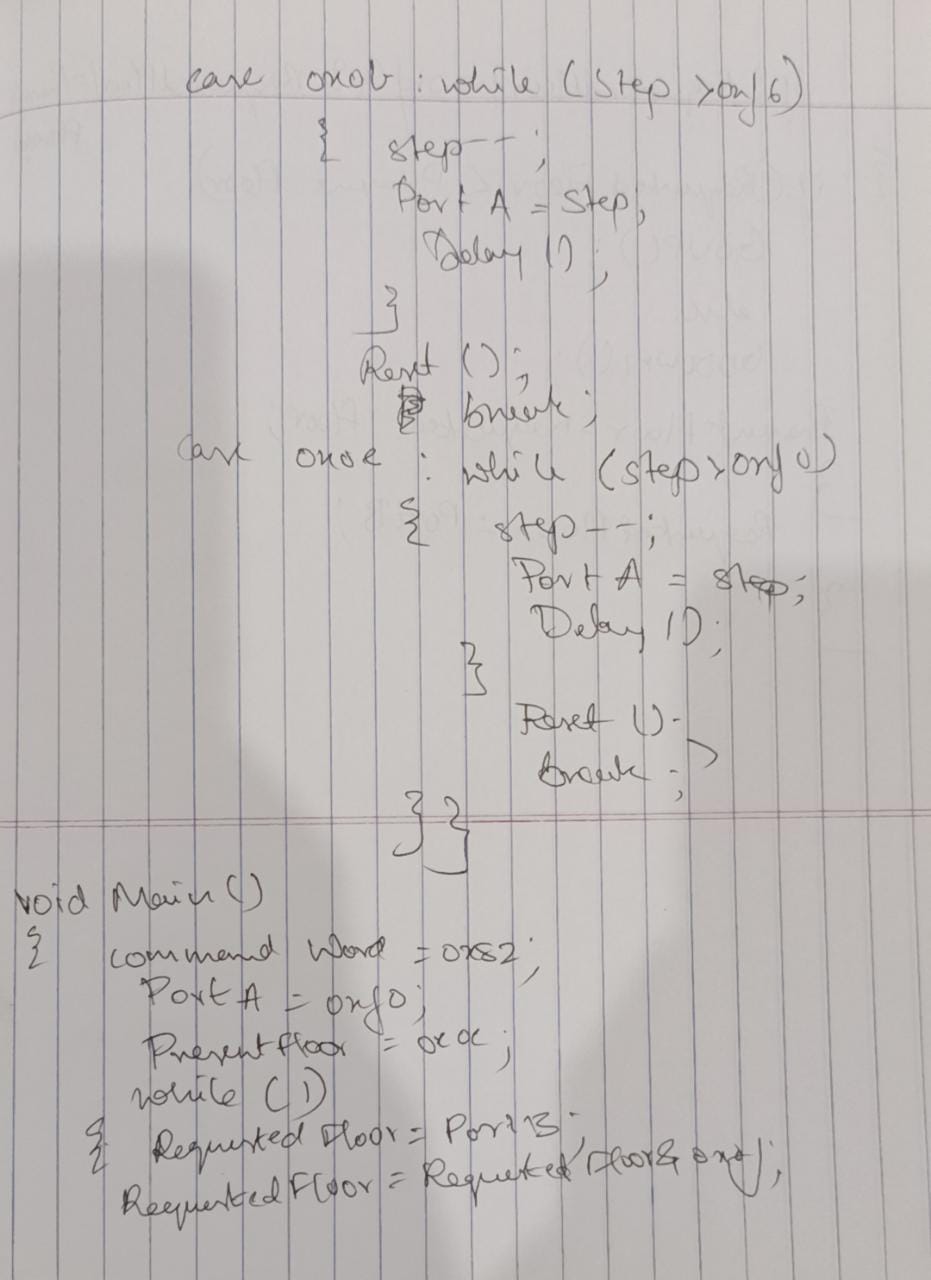 case 0x0b : while (step >0xf6)
{ step--;
Port A = step;
Delay ();
}
Reset ();
break;
case 0x0e : while (step>0xf0)
{ step--;
Port A = step;
Delay ();
}
Reset ();
break;
}}
void Main()
{ command Word = 0x82;
Port A = 0xf0;
Present floor = 0x0e;
while (1)
{ Requested Floor = Port B;
Requested Floor = Requested Floor & 0xof;